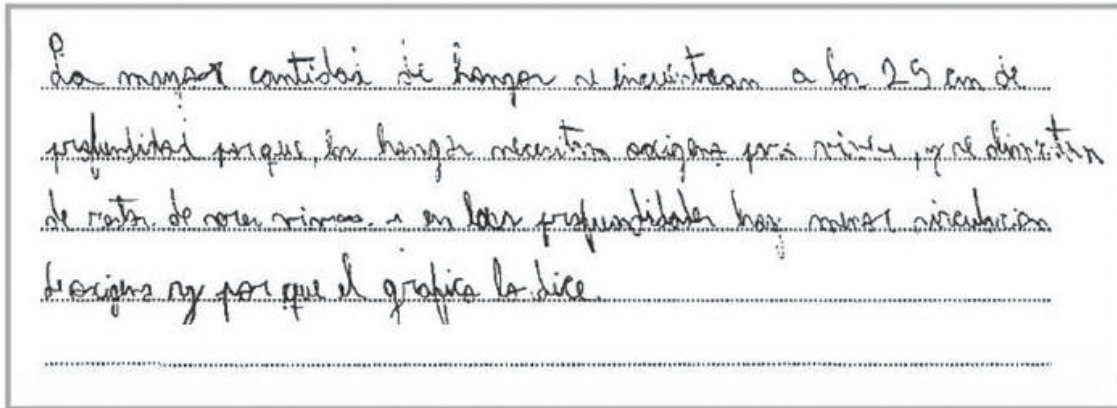 La mayor cantidad de hongos se encuentran a los 25 cm de
profundidad porque, los hongos necesitan oxigeno para vivir, y se alimentan
de restos de seres vivos. y en las profundidades hay menor circulacion
de oxigeno y por que el grafico lo dice.